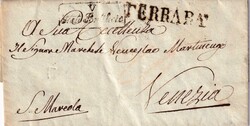 FERRARA
A Sua Eccellenza
Il Signor Marchese Venceslao Martinengo
S. Marcola
Venezia